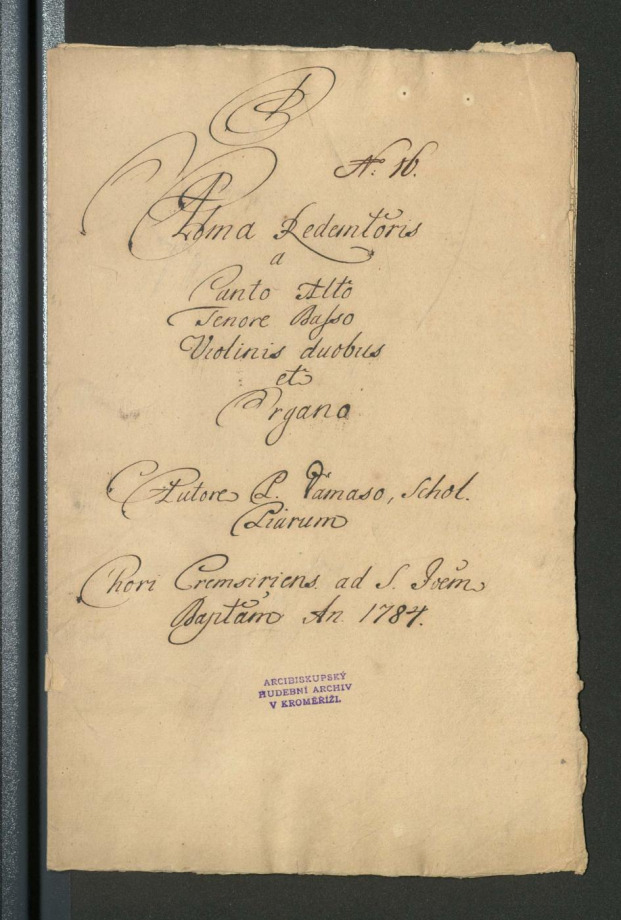 N: 16.
Alma Redemtoris
a
Canto Alto
Tenore Basso
Violinis duobus
et
Organo
Autore P. Damaso, Schol.
Piarum
Chori Cremsiriens. ad S. Joem
Baptam An. 1784.
ARCIBISKUPSKÝ
HUDEBNÍ ARCHIV
V KROMĚŘÍŽI.